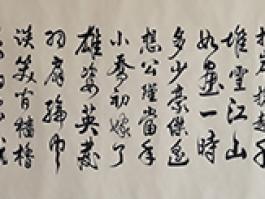 堆雪江山
如画一時
多少豪傑遥
想公瑾當年
小喬初嫁了
雄姿英發
羽扇綸巾
談笑間檣櫓